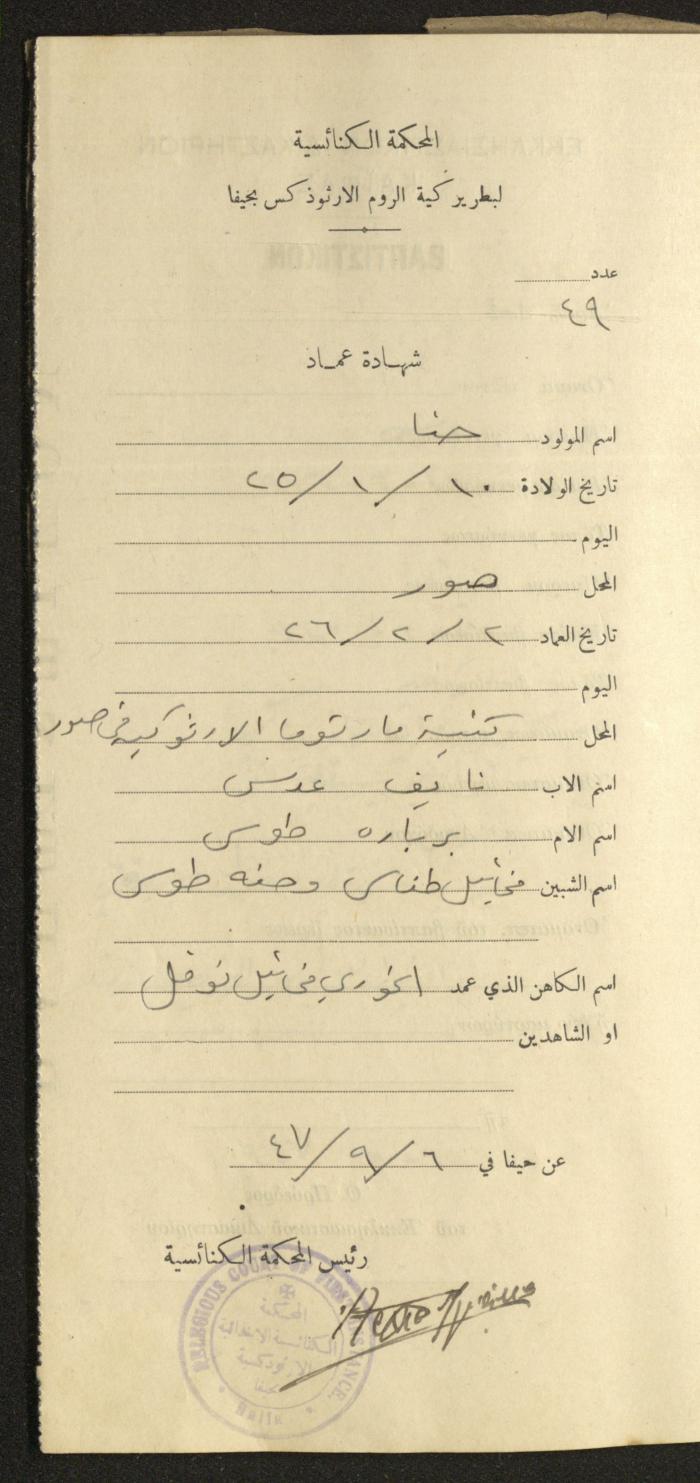 المحكمة الكنائسية
لبطريركية الروم الارثوذكس بحيفا
عدد
٤٩
شهادة عماد
اسم المولود حنا
تاريخ الولادة ١٠/١/٢٥
اليوم
المحل صور
تاريخ العماد ٢/٢/٢٦
اليوم
المحل كنيسة مار توما الارثوذكسيه في صور
اسم الاب نايف عدس
اسم الام برباره طوس
اسم الشبين مخائيل طناس وحنه طوس
اسم الكاهن الذي عمد الخوري مخائيل نوفل
او الشاهدين
عن حيفا في ٦/٩/٤٧
رئيس المحكمة الكنائسية
RELIGIOUS COURT OF FIRST INSTANCE
المحكمة
الكنائسية الابتدائية
الارثوذكسية
بحيفا
Haifa